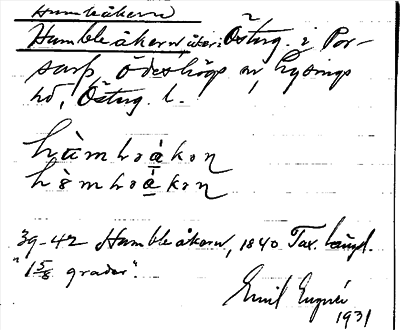 Humbleåkern
Humbleåkern, åker: Österg. i Por-
sarp, Ödeshögs sn, Lysings
hd, Österg. l.
hùmbɷákɷn
hòmbɷákɷn
39-42 Humbleåkern, 1840 Tax. längd.
"1 5/8 grader".
Emil
1931